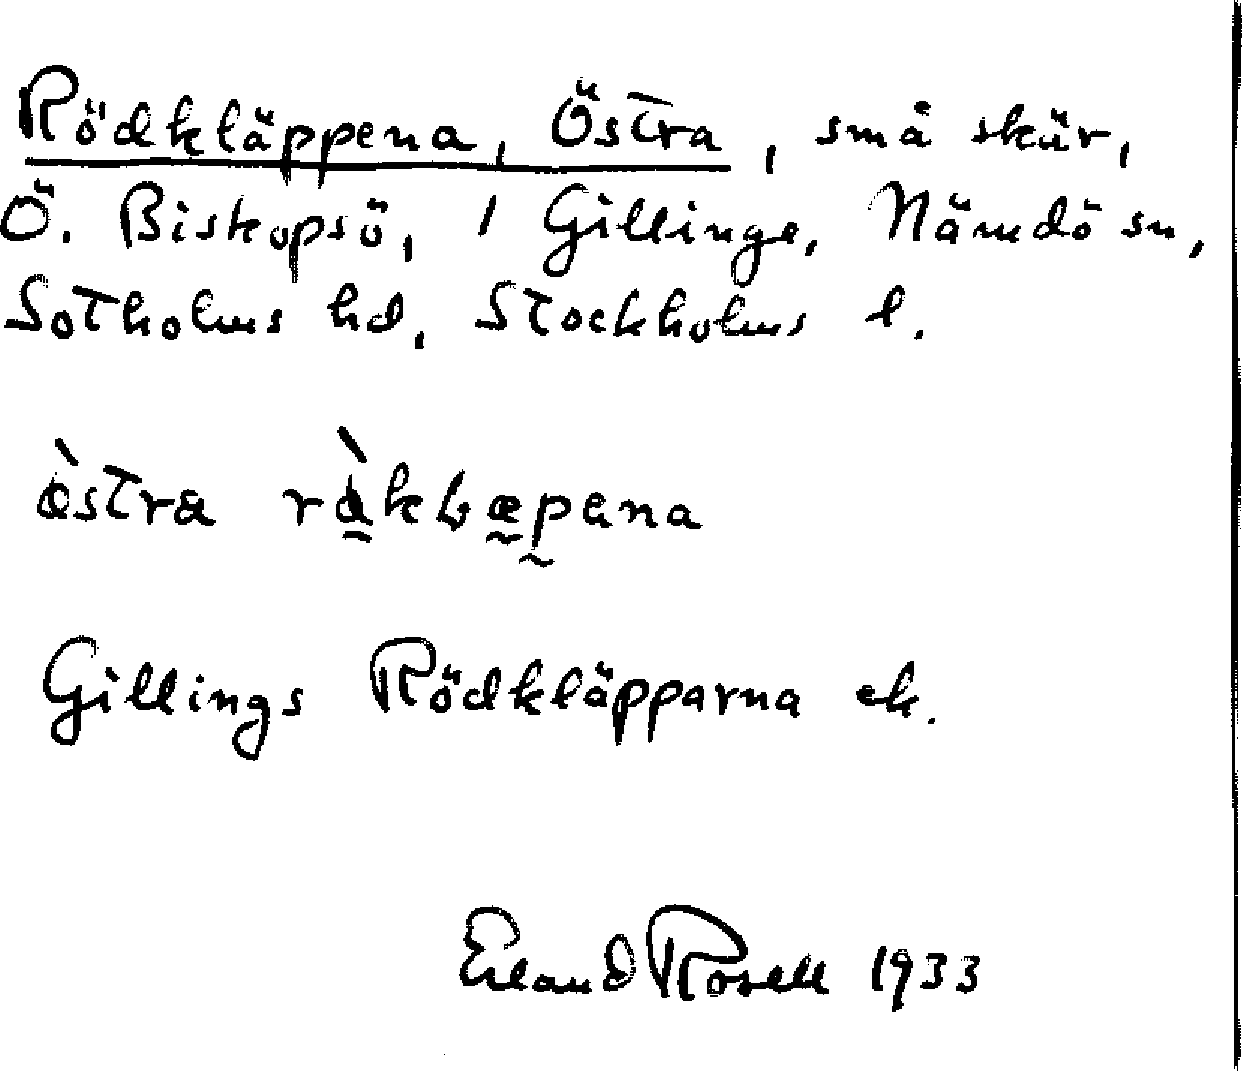 Rödkläppena, Östra, små skär,
Ö. Biskopsö, 1 Gillinge, Nämdö sn,
Sotholms hd, Stockholms l.
Gillings Rödkläpparna ek.
Erland Rosell 1933